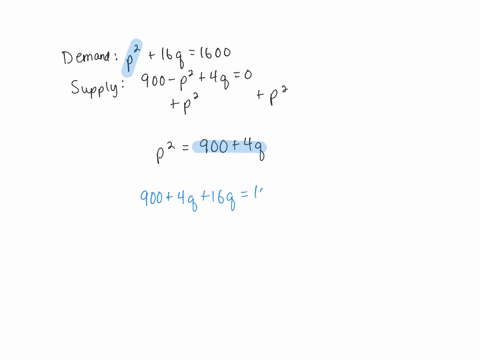 Demand: p² + 16q = 1600
Supply: 900 - p² + 4q = 0
+ p² + p²
p² = 900 + 4q
900 + 4q + 16q = 1